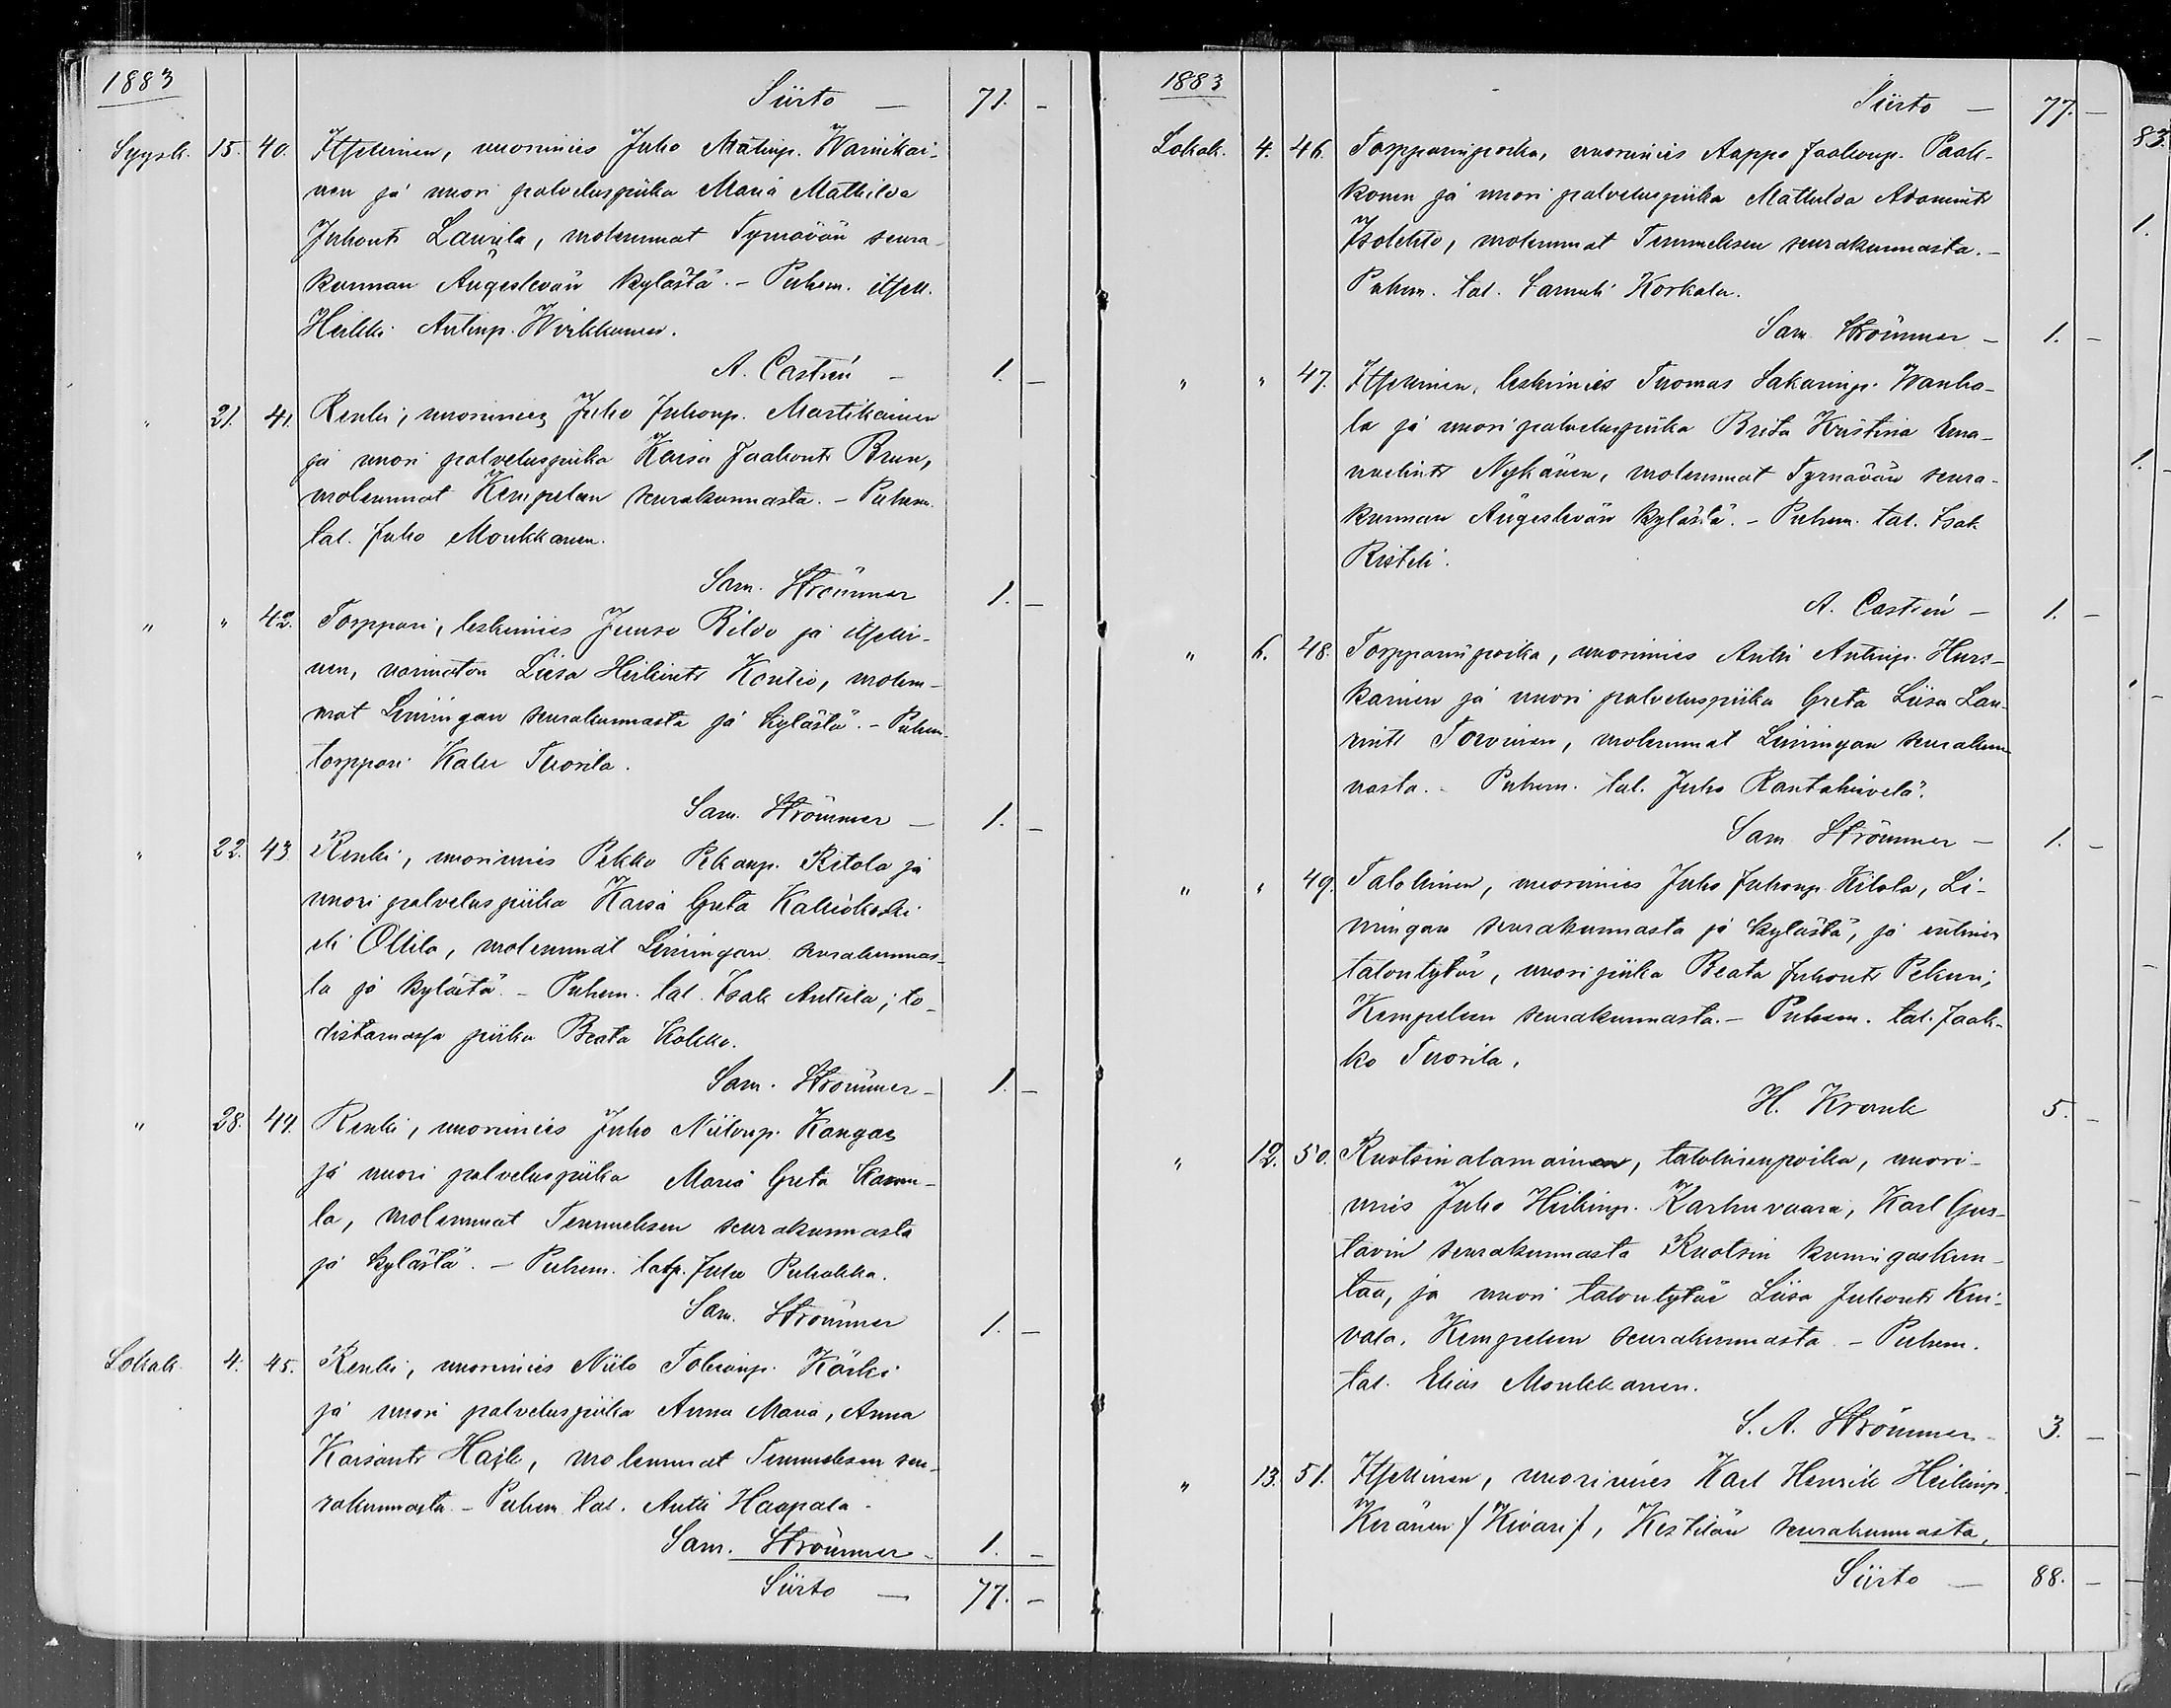 1883
Siirto — 71. -
Syysk. 15. 40. Itsellinen, nuorimies Juho Matinp. Warnikai-
nen ja nuori palveluspiika Maria Mathilda
Juhont Laurila, molemmat Tyrnävän seura-
kunnan Ängeslevän kylästä. - Puhem. itsell.
Heikki Antinp. Wirkkunen.
A. Castrén - 1. -
" 21. 41. Renki, nuorimies Juho Juhonp. Martikainen
ja nuori palveluspiika Kaisa Jaakontr Brun,
molemmat Kempeleen seurakunnasta. - Puhem.
tal. Juho Monkkanen.
Sam. Strömmer 1. -
" " 42. Torppari, leskimies Junso Rildo ja itselli-
nen, naimaton Liisa Heikintr Kontio, molem-
mat Limingan seurakunnasta ja kylästä. - Puhem.
torppari Kalle Tuorila.
Sam. Strömmer - 1. -
" 22. 43. Renki, nuorimies Pekka Pekanp. Ritola ja
nuori palveluspiika Kaisa Greta Kalliokoski
eli Ollila, molemmat Limingan seurakunnas-
ta ja kylästä. - Puhem. tal. Isak Anttila; to-
distamassa piika Beata Kokko.
Sam. Strömmer - 1. -
" 28. 44. Renki, nuorimies Juho Niilonp. Kangas
ja nuori palveluspiika Maria Greta Kamu-
la, molemmat Temmeksen seurakunnasta
ja kylästä. - Puhem. Juho Puhakka.
Sam. Strömmer 1. -
Lokak. 4. 45. Renki, nuorimies Niilo Käski
ja nuori palveluspiika Anna Maria, Anna
Kaisantr molemmat Temmeksen seu-
rakunnasta. - Puhem. tal. Antti Haapala.
Sam. Strömmer - 1. -
Siirto — 77. -
1883
Siirto — 77. -
Lokak. 4. 46. Torpparinpoika, nuorimies Aappo Jaakonp. Paak-
konen ja nuori palveluspiika Mathilda Adamintr
Isolehto, molemmat Temmeksen seurakunnasta. -
Puhem. tal. Samuli Korkala.
Sam. Strömmer - 1. -
" " 47. Itsellinen, leskimies Tuomas Sakarinp. Wanha-
la ja nuori palveluspiika Brita Kristina Ema-
nuelintr Nykänen, molemmat Tyrnävän seura-
kunnan Ängeslevän kylästä. - Puhem. tal. Isak
Risteli.
A. Castrén - 1. -
" 6. 48. Torpparinpoika, nuorimies Antti Antinp. Hurs-
kainen ja nuori palveluspiika Greta Liisa Lau-
rintr Torvinen, molemmat Limingan seurakun-
nasta. - Puhem. tal. Juho Rantahuvela.
Sam Strömmer - 1. -
" " 49. Talollinen, nuorimies Juho Juhonp. Kilola, Li-
mingan seurakunnasta ja kylästä, ja entinen
talontytär, nuori piika Beata Juhontr Pekuri,
Kempeleen seurakunnasta. - Puhem. tal. Jaak-
ko Tuorila.
H. Krank 5. -
" 12. 50. Ruotsinalamainen, talollisenpoika, nuori-
mies Juho Heikinp. Karhuvaara, Karl Gus-
tavin seurakunnasta Ruotsin kuningaskun-
taa, ja nuori talontytär Liisa Juhontr Kui-
vala, Kempeleen seurakunnasta. - Puhem.
tal. Elias Monkkanen.
S. A. Strömmer - 3. -
" 13. 51. Itsellinen, nuorimies Karl Henrik Heikinp.
Keränen (Kivari), Kestilän seurakunnasta,
Siirto — 88. -
83.
1.
1. -